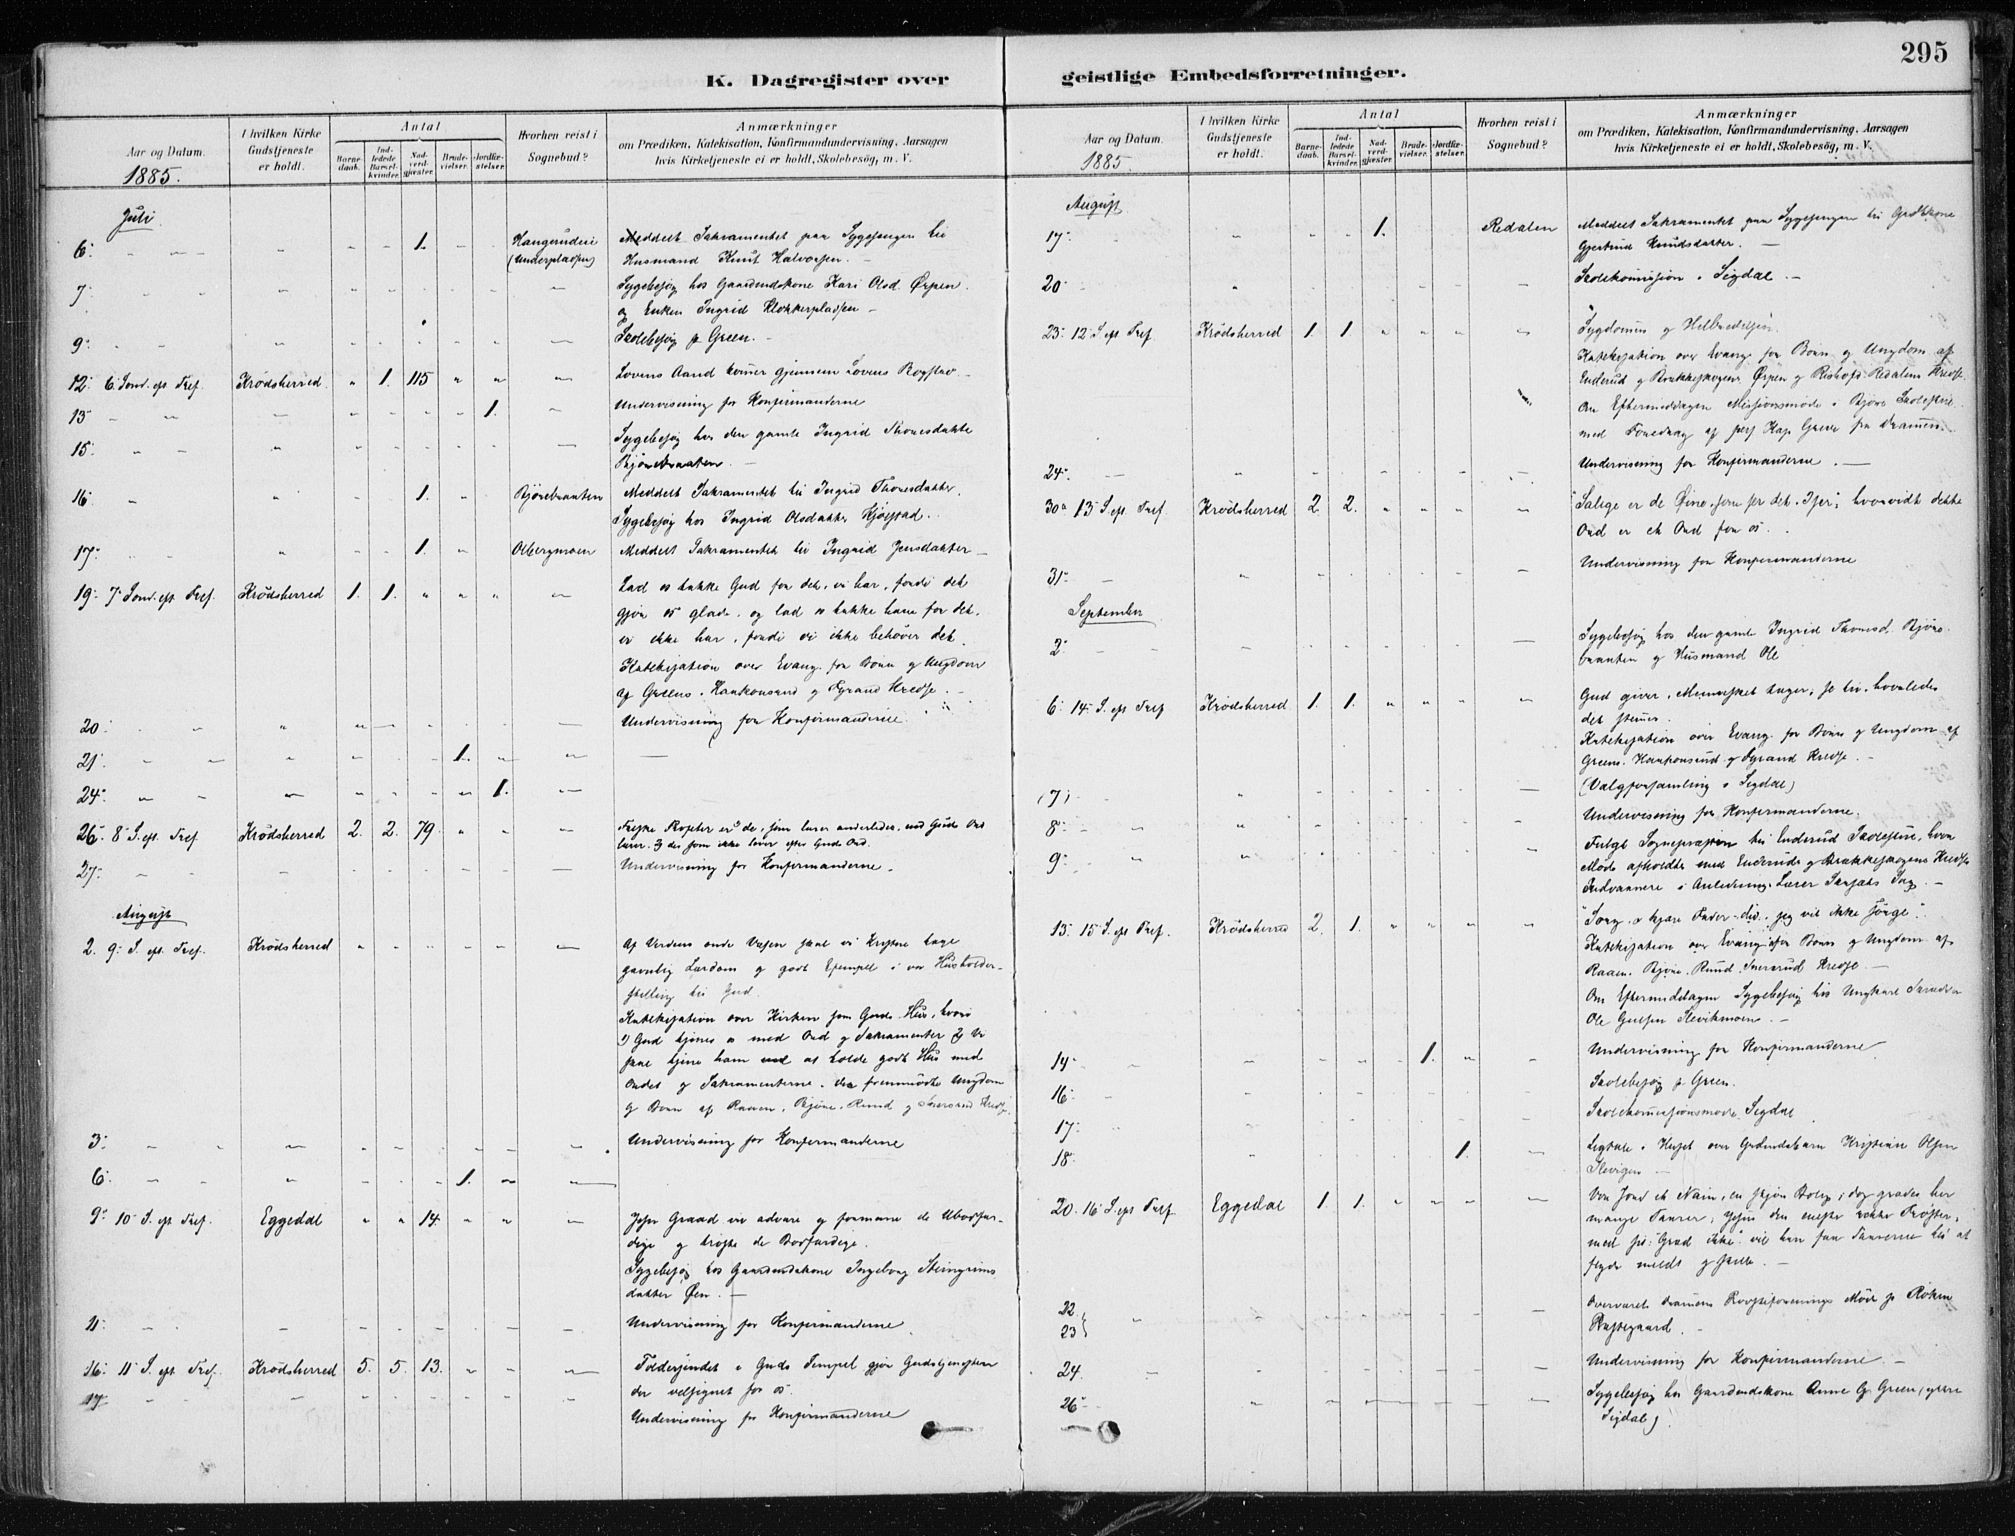 295
K. Dagregister over geistlige Embedsforretninger.
Aar og Datum. 1885.
I hvilken Kirke Gudstjeneste er holdt.
Antal
Barnedaab.
Indledede Barselkvinder.
Nadverdgjester.
Brudevielser.
Jordfæstelser.
Hvorhen reist i Sognebud?
Anmærkninger
om Prædiken, Katekisation, Konfirmandundervisning, Aarsagen
hvis Kirketjeneste ei er holdt, Skolebesög, m. V.
Juli
6. 1. Meddelt Sakramentet paa Sygesengen til
(Underpladsen) Husmand Knut Halvorsen.
7. Sygebesøg hos Gaardmandskone Kari Olsd. Ørpen
og Enken Ingrid Klokkerpladsen
9. Skolebesøg p. Green.
12. 6. Sønd. eft. Tref. Krødsherred 1. 115 Lovens Aand kommer gjennem Lovens Bogstav.
13 1. Undervisning for Konfirmanderne
15. Sygebesøg hos den gamle Ingrid Thoresdatter
Bjørebraaten.
16 1. Bjørebraaten Meddelt Sakramentet til Ingrid Thoresdatter.
Sygebesøg hos Ingrid Olsdatter
17. 1. Olbergmoen Meddelt Sakramentet til Ingrid Jensdatter
19. 7. Sønd. eft. Tref. Krødsherred 1. 1. Lad os takke Gud for det, vi har, fordi det
gjør os glade, og lad os takke ham for det,
vi ikke har, fordi vi ikke behøver det.
Katekisation over Evang. for Børn og Ungdom
af Greens, og Kredse.
20. Undervisning for Konfirmanderne
21. 1.
24. 1.
26. 8. S. eft. Tref. Krødsherred 2. 2. 79 Falske Profeter er de, som lærer anderledes, end Guds Ord
lærer. 2) de som ikke lever efter Guds Ord.
27. Undervisning for Konfirmanderne.
August
2. 9. S. eft. Tref. Krødsherred Af Verdens onde Væsen skal vi Kristne tage
gavnlig Lærdom og godt Exempel i vor Husholder-
stilling til Gud.
Katekisation over Kirken som Guds Hus, hvori
1) Gud tjener os med Ord og Sakramenter 2) Vi
skal tjene ham at holde godt Hus med
Ordet og Sakramenterne. Den fremmødte Ungdom
og Børn af Raaen, Bjøre, Ruud og Kredse.
3. Undervisning for Konfirmanderne
6. 1.
9. 10. S. eft. Tref. Eggedal 14. Jesu Graad vil advare og formane de Ubodfær-
dige og trøste de Bodfærdige.
Sygebesøg hos Gaardmandskone Ingeborg Steingrims
datter Øen.
11. Undervisning for Konfirmanderne
16. 11. S. eft. Tref. Krødsherred 5. 5. 13. i Guds Tempel gjør Gudstjenesten
der velsignet for os.
17 Undervisning for Konfirmanderne
Aar og Datum. 1885.
I hvilken Kirke Gudstjeneste er holdt.
Antal
Barnedaab.
Indledede Barselkvinder.
Nadverdgjester.
Brudevielser.
Jordfæstelser.
Hvorhen reist i Sognebud?
Anmærkninger
om Prædiken, Katekisation, Konfirmandundervisning, Aarsagen
hvis Kirketjeneste ei er holdt, Skolebesög, m. V.
August
17. 1. Redalen Meddelt Sakramentet paa Sygesengen til
Gjertrud Knudsdatter.
20. Skolekomission i Sigdal.
23. 12. S. eft. Tref. Krødsherred 1. 1. Sygdommen og Helbredelsen.
Katekisation over Evang. for Børn og Ungdom af
Enderud og Brækkeskogens, Ørpen og Redalens Kredse.
Om Eftermiddagen Missionsmøde i Bjøre Skolestue
med Foredrag af Kap. Greve fra Drammen.
24. Undervisning for Konfirmanderne.
30. 13. S. eft. Tref. Krødsherred 2. 2. "Salige er de Øine, som ser det, I ser"; hvorvidt dette
Ord er et Ord for os.
31. Undervisning for Konfirmanderne
September
2. Sygebesøg hos den gamle Ingrid Thoresd. Bjøre-
braaten og Husmand Ole
6. 14. S. eft. Tref. Krødsherred 1. 1. Gud giver, Mennesket tager; se til, hvorledes
det stemmer.
Katekisation over Evang. for Børn og Ungdom af
Greens, og Kredse.
(7) (Valgforsamling i Sigdal)
8. Undervisning for Konfirmanderne.
9. Fulgt Sognepræsten til Enderud Skolestue, hvor
Møde afholdtes med Enderuds og Brækkeskogens Kredse
i Anledning Lærer
13. 15. S. eft. Tref. Krødsherred 2. 1. "Sørg, o kjære Fader, du, jeg vil ikke sørge".
Katekisation over Evang. for Børn og Ungdom af
Raaen, Bjøre, Ruud, Kredse.
Om Eftermiddagen Sygebesøg hos Ungkarl
Ole Gulsen Slevikmoen.
14. 1. Undervisning for Konfirmanderne
16. Skolebesøg p. Green.
17. Skolekomissionsmøde Sigdal
18. 1. Ligtale i Huset over Gaardmandsbarn Kristian Olsen
Slevigen
20. 16. S. eft. Tref. Eggedal 1. 1. Vor Jord et Nain, en skjøn Bolig; dog grædes her
mange Taarer; Jesus den eneste rette Trøster;
med sit "Græd ikke" vil han faa Taarerne til at
flyde mildt og stille.
22
23} Overværet Drammens Møde p. Røken
Præstegaard.
24. Undervisning for Konfirmanderne.
26. Sygebesøg hos Gaardmandskone Anne G. Green (ytre
Sigdal)